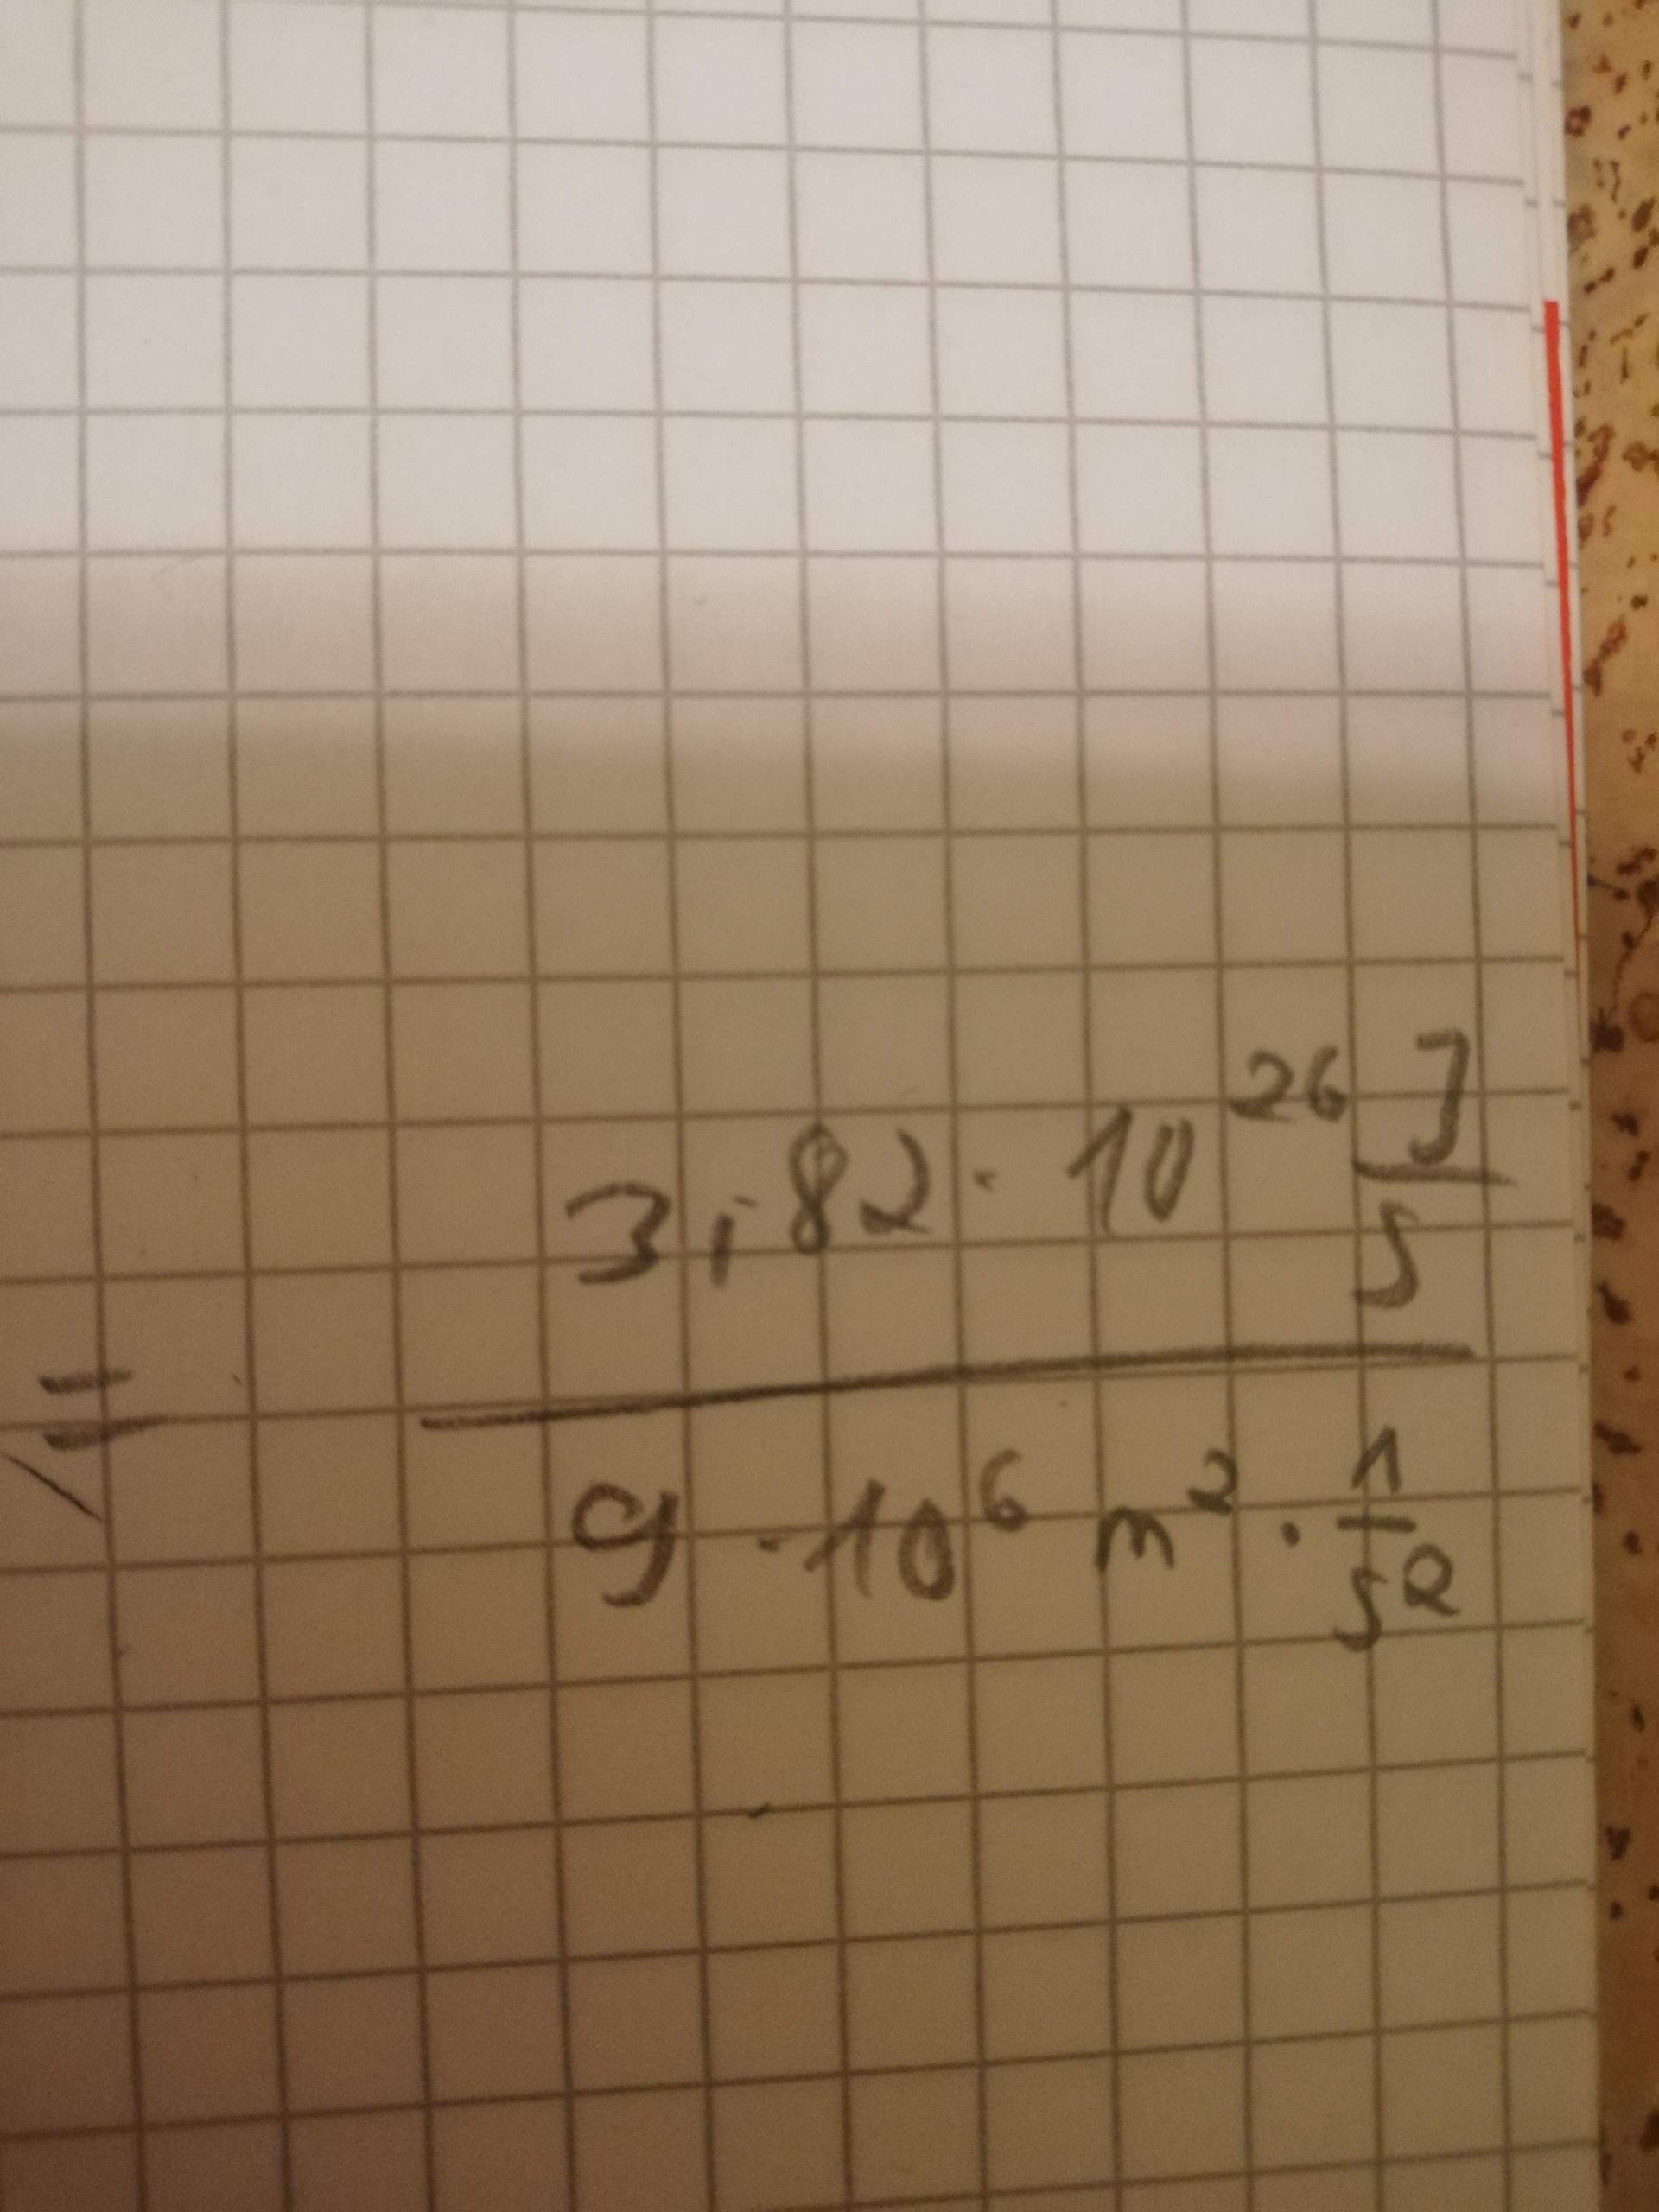 = 3,82 · 10²⁶ J/s
9 · 10⁶ m² · 1/s²